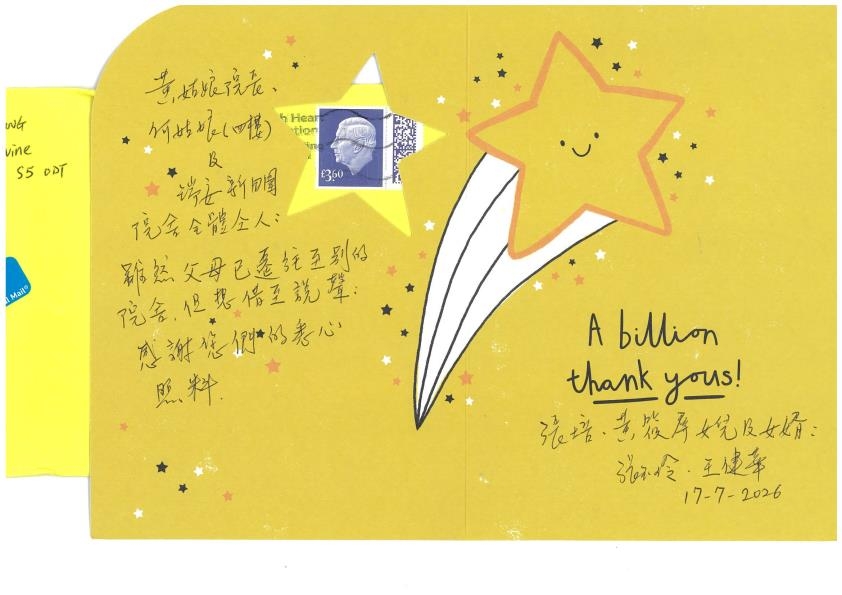 黃姑娘院長、
何姑娘(四樓)
及
瑞安新田圍
院舍全體仝人:
雖然父母已遷往至別的
院舍,但想借至說聲:
感謝您們的悉心
照料.
£3.60
A billion
thank yous!
張培、黃筱屏女兒及女婿:
張玉伶. 王健華
17-7-2026
vine
S5 0DT
l Mail